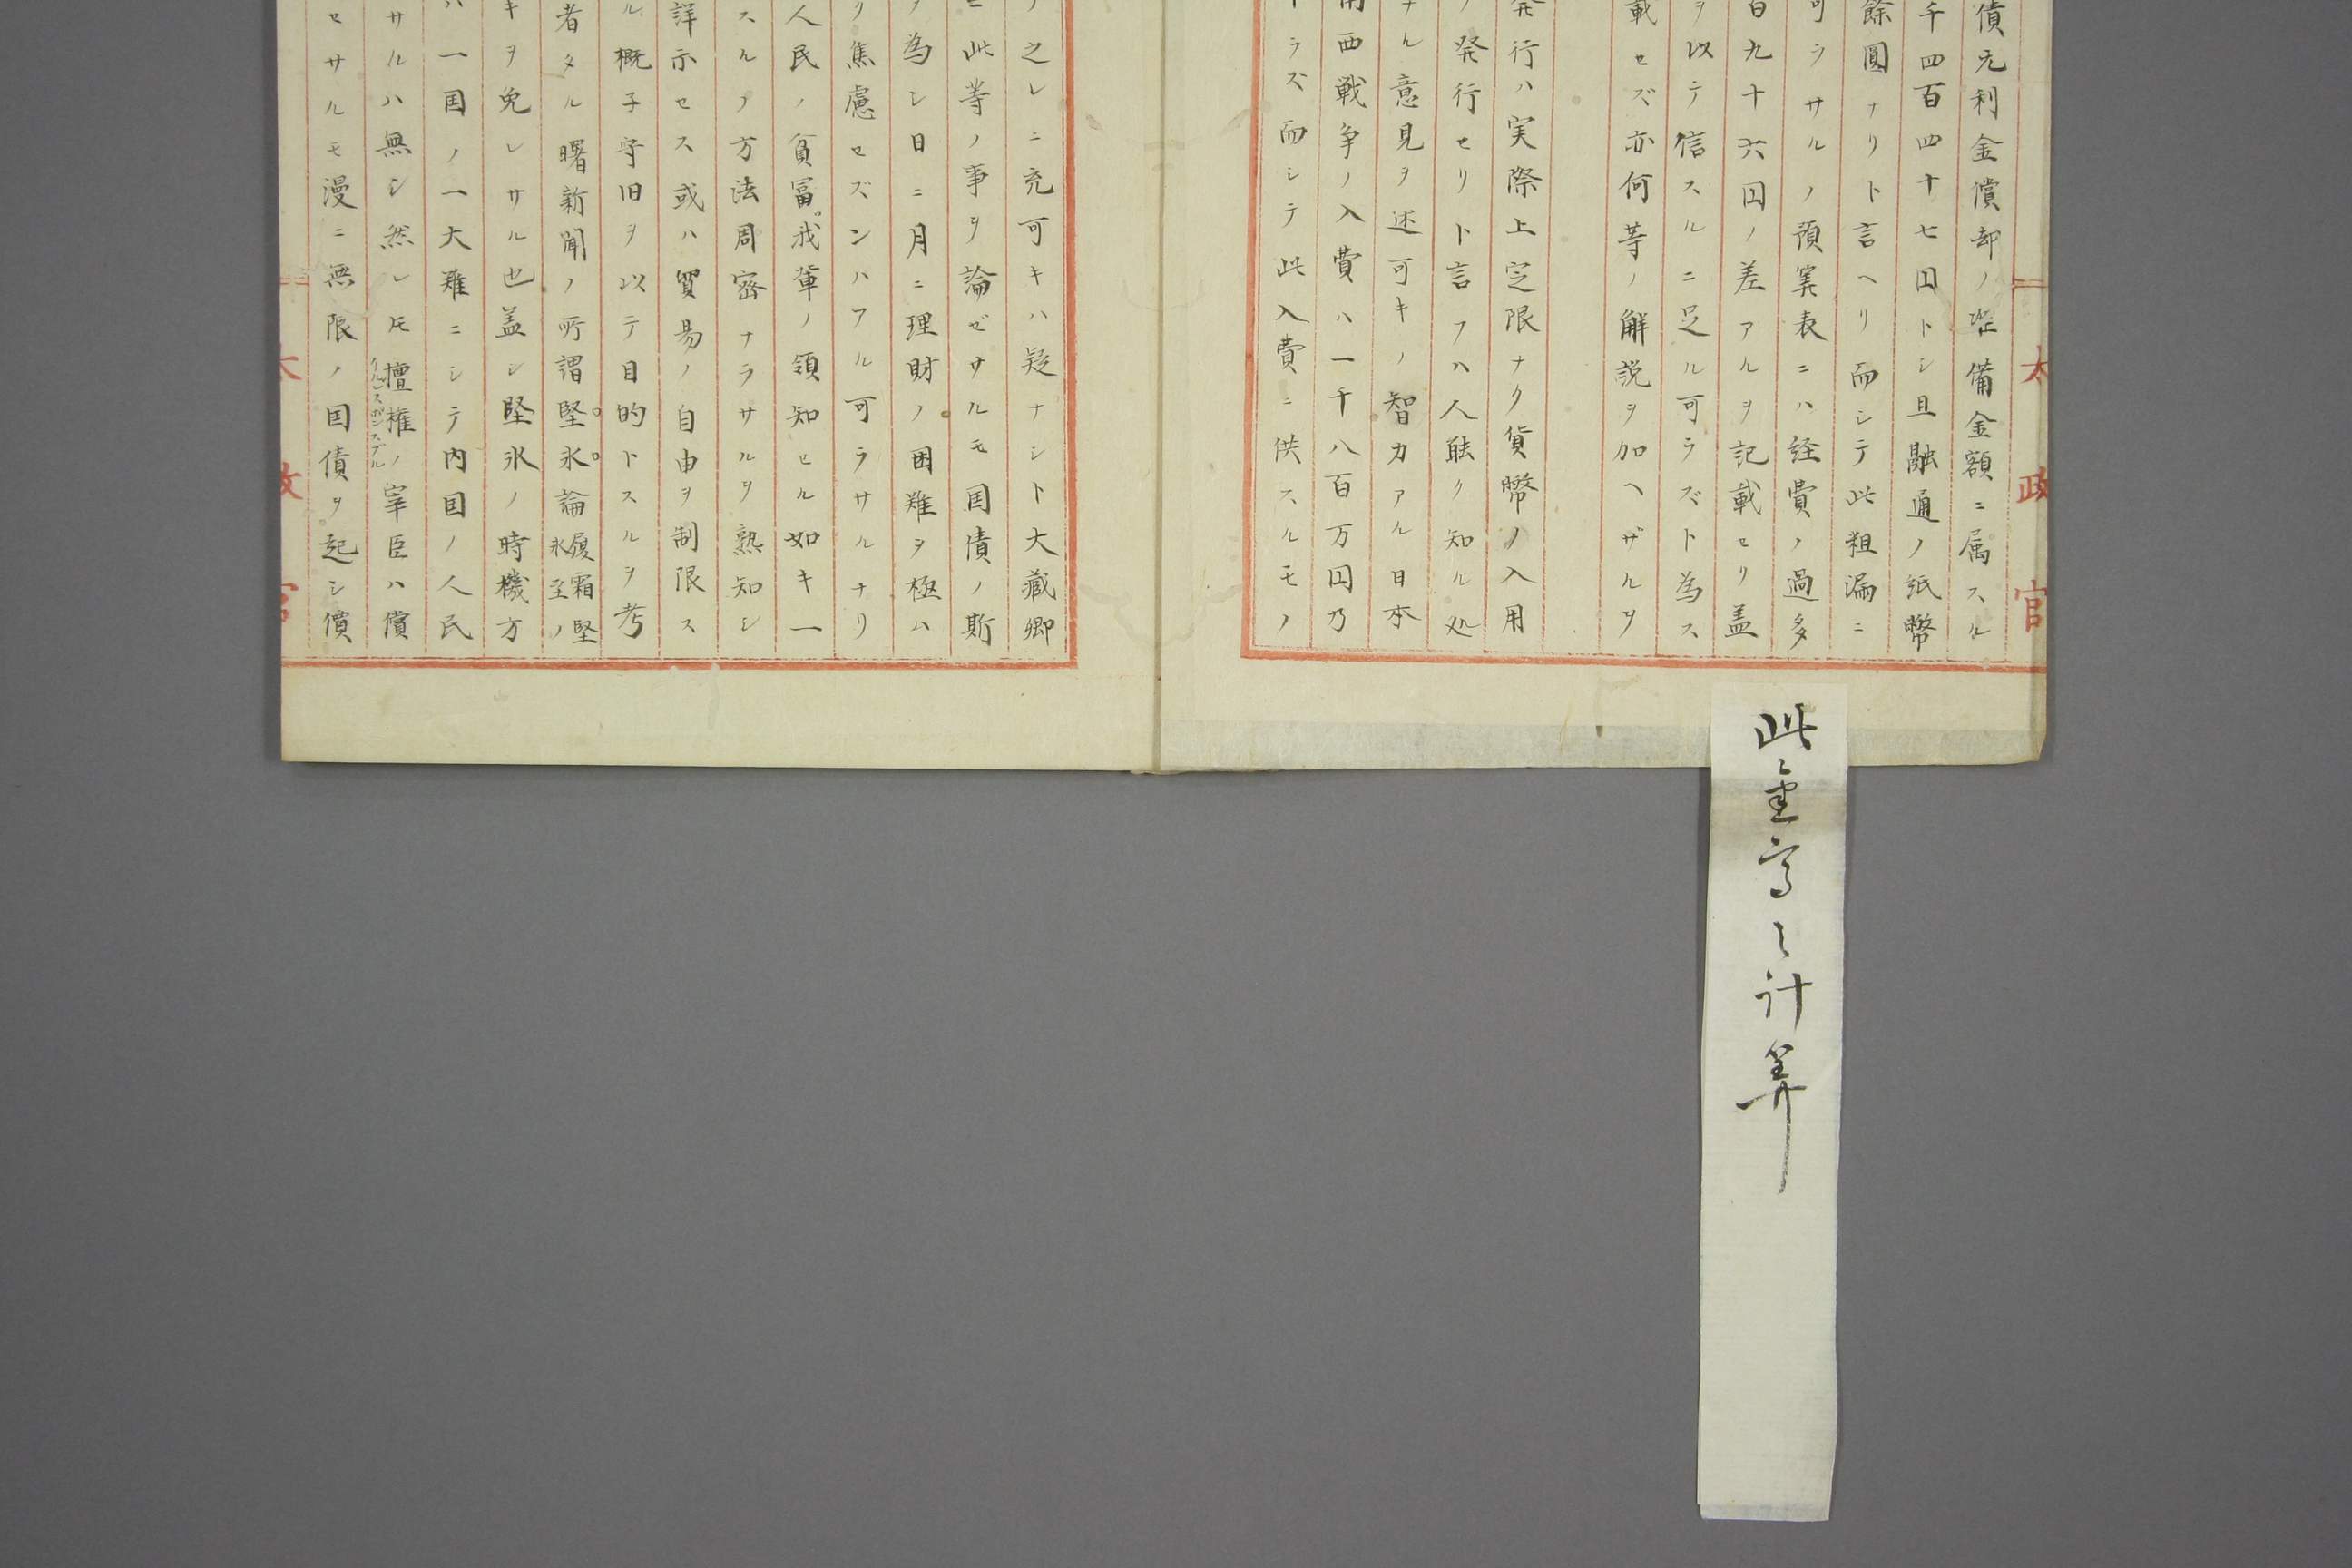 太政官
債元利金償却ノ準備金額ニ属スル
千四百四十七円トシ且融通ノ紙幣
餘圓ナリト言ヘリ而シテ此粗漏ニ
可ラサルノ預筭表ニハ経費ノ過多
百九十六円ノ差アルヲ記載セリ盖
ヲ以テ信スルニ足ル可ラズト為ス
載セズ亦何等ノ解説ヲ加ヘザルヲ
発行ハ実際上定限ナク貨幣ノ入用
ノ発行セリト言フハ人能ク知ル処
ナル意見ヲ述可キノ智力アル日本
南西戦争ノ入費ハ一千八百万円乃
ラズ而シテ此入費ニ供スルモノ
之レニ充可キハ疑ナシト大蔵卿
ニ此等ノ事ヲ論ゼサルモ国債ノ斯
ヲ為シ日ニ月ニ理財ノ困難ヲ極ム
リ焦慮セズンハアル可ラサルナリ
人民ノ貧冨。我輩ノ領知セル如キ一
スルノ方法周密ナラサルヲ熟知シ
詳示セス或ハ貿易ノ自由ヲ制限ス
ル概子守旧ヲ以テ目的トスルヲ考
者タル曙新聞ノ所謂堅。氷。論履霜堅氷至ノ
キヲ免レサル也盖シ堅氷ノ時機方
ハ一国ノ一大難ニシテ内国ノ人民
サルハ無シ然レ𪜈擅権ノ宰臣ハ償
イルレスポンスブル
セサルモ漫ニ無限ノ国債ヲ起シ價
太政官
此金高之計算